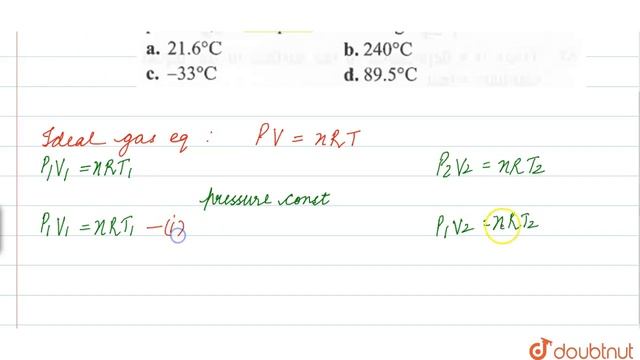 a. 21.6°C b. 240°C
c. –33°C d. 89.5°C
Ideal gas eq : PV = nRT
P1V1 = nRT1 P2V2 = nRT2
pressure const
P1V1 = nRT1 —(i) P1V2 = nRT2
doubtnut